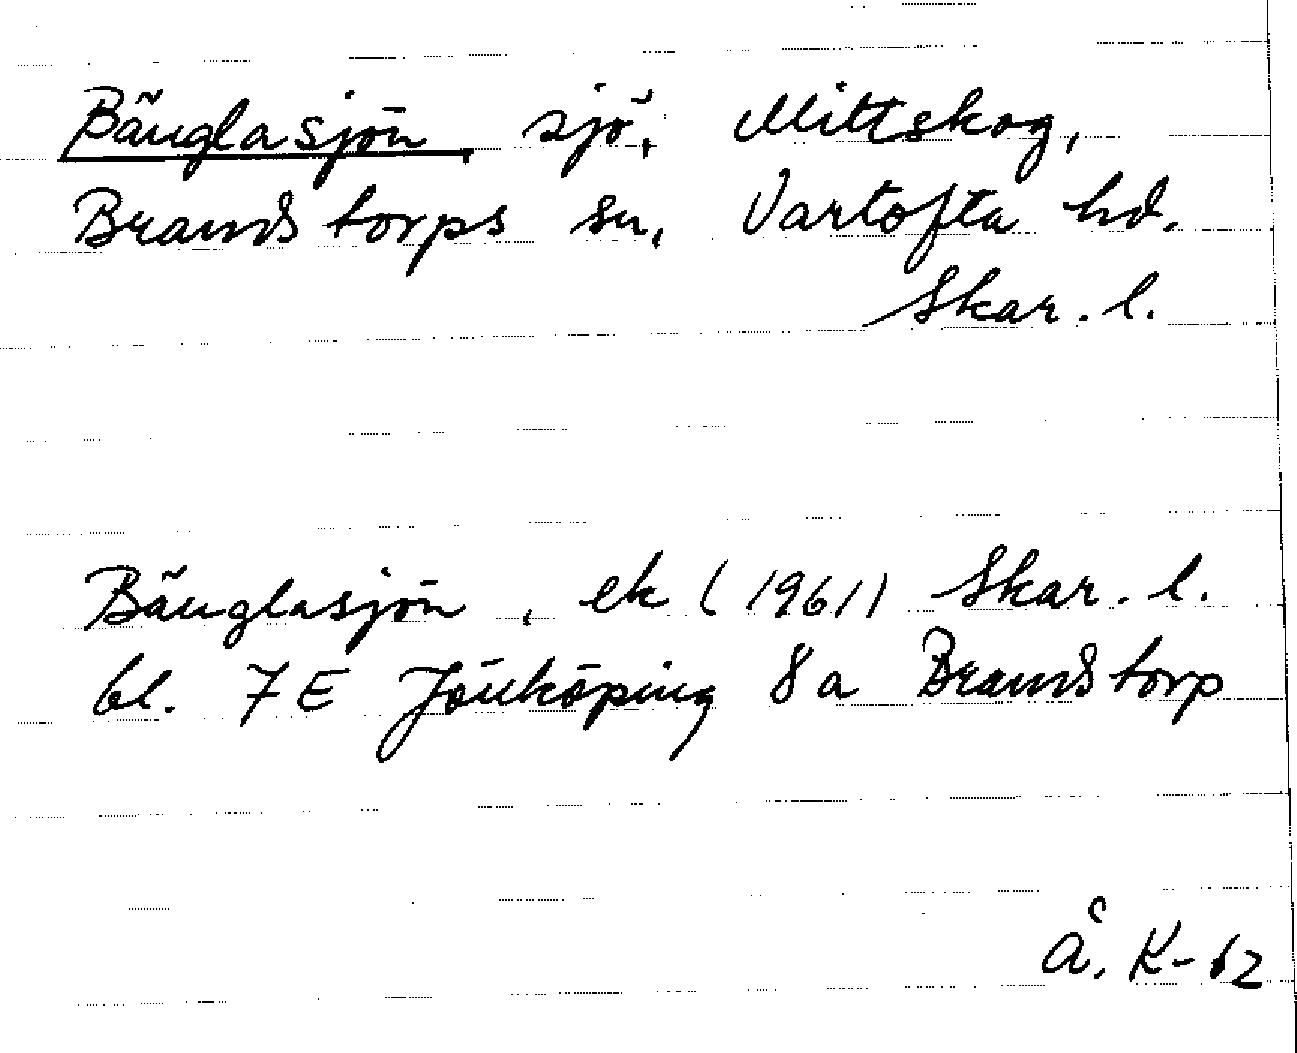 Bänglasjön, sjö, Mittskog,
Brandstorps sn, Vartofta hd.
Skar. l.
Bänglasjön, ek (1961) Skar. l.
bl. 7E Jönköping 8a Brandstorp
Å. K-62